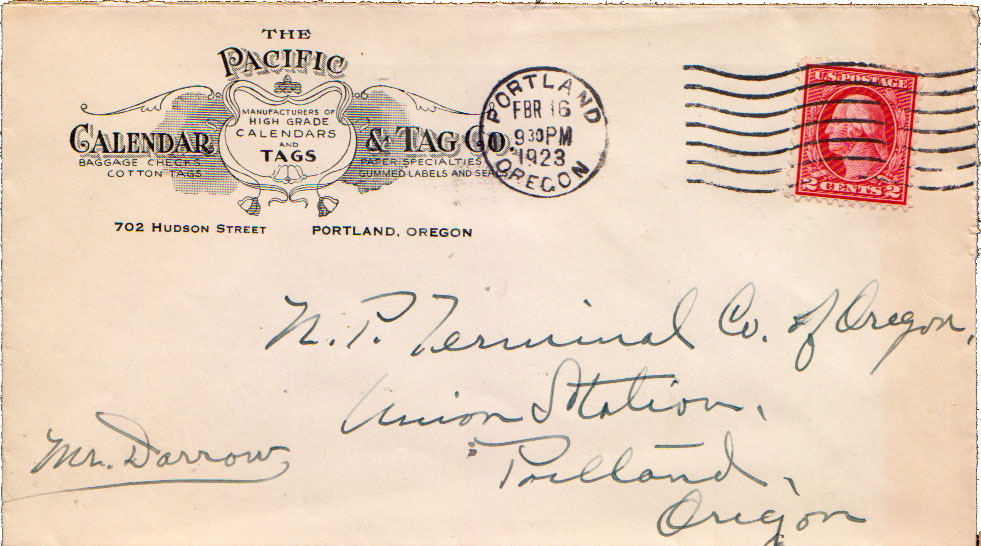 THE
PACIFIC
CALENDAR & TAG CO.
MANUFACTURERS OF
HIGH GRADE
CALENDARS
AND
TAGS
BAGGAGE CHECKS
COTTON TAGS
PAPER SPECIALTIES
GUMMED LABELS AND SEALS
702 HUDSON STREET PORTLAND, OREGON
PORTLAND
FBR 16
9 30 PM
1923
OREGON
U.S. POSTAGE
2 CENTS 2
N. P. Terminal Co. of Oregon,
Union Station,
Portland,
Oregon
Mr. Darrow